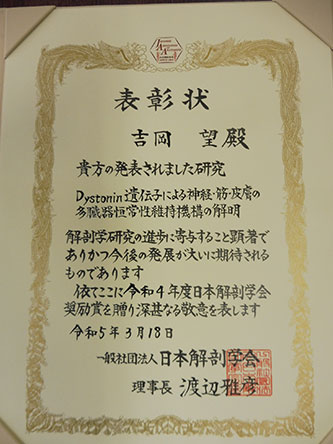 表彰状
吉岡 望殿
貴方の発表されました研究
Dystonin遺伝子による神経・筋・皮膚の
多臓器恒常性維持機構の解明
解剖学研究の進歩に寄与すること顕著で
ありかつ今後の発展が大いに期待される
ものであります
依てここに令和4年度日本解剖学会
奨励賞を贈り深甚なる敬意を表します
令和5年3月18日
一般社団法人 日本解剖学会
理事長 渡辺雅彦